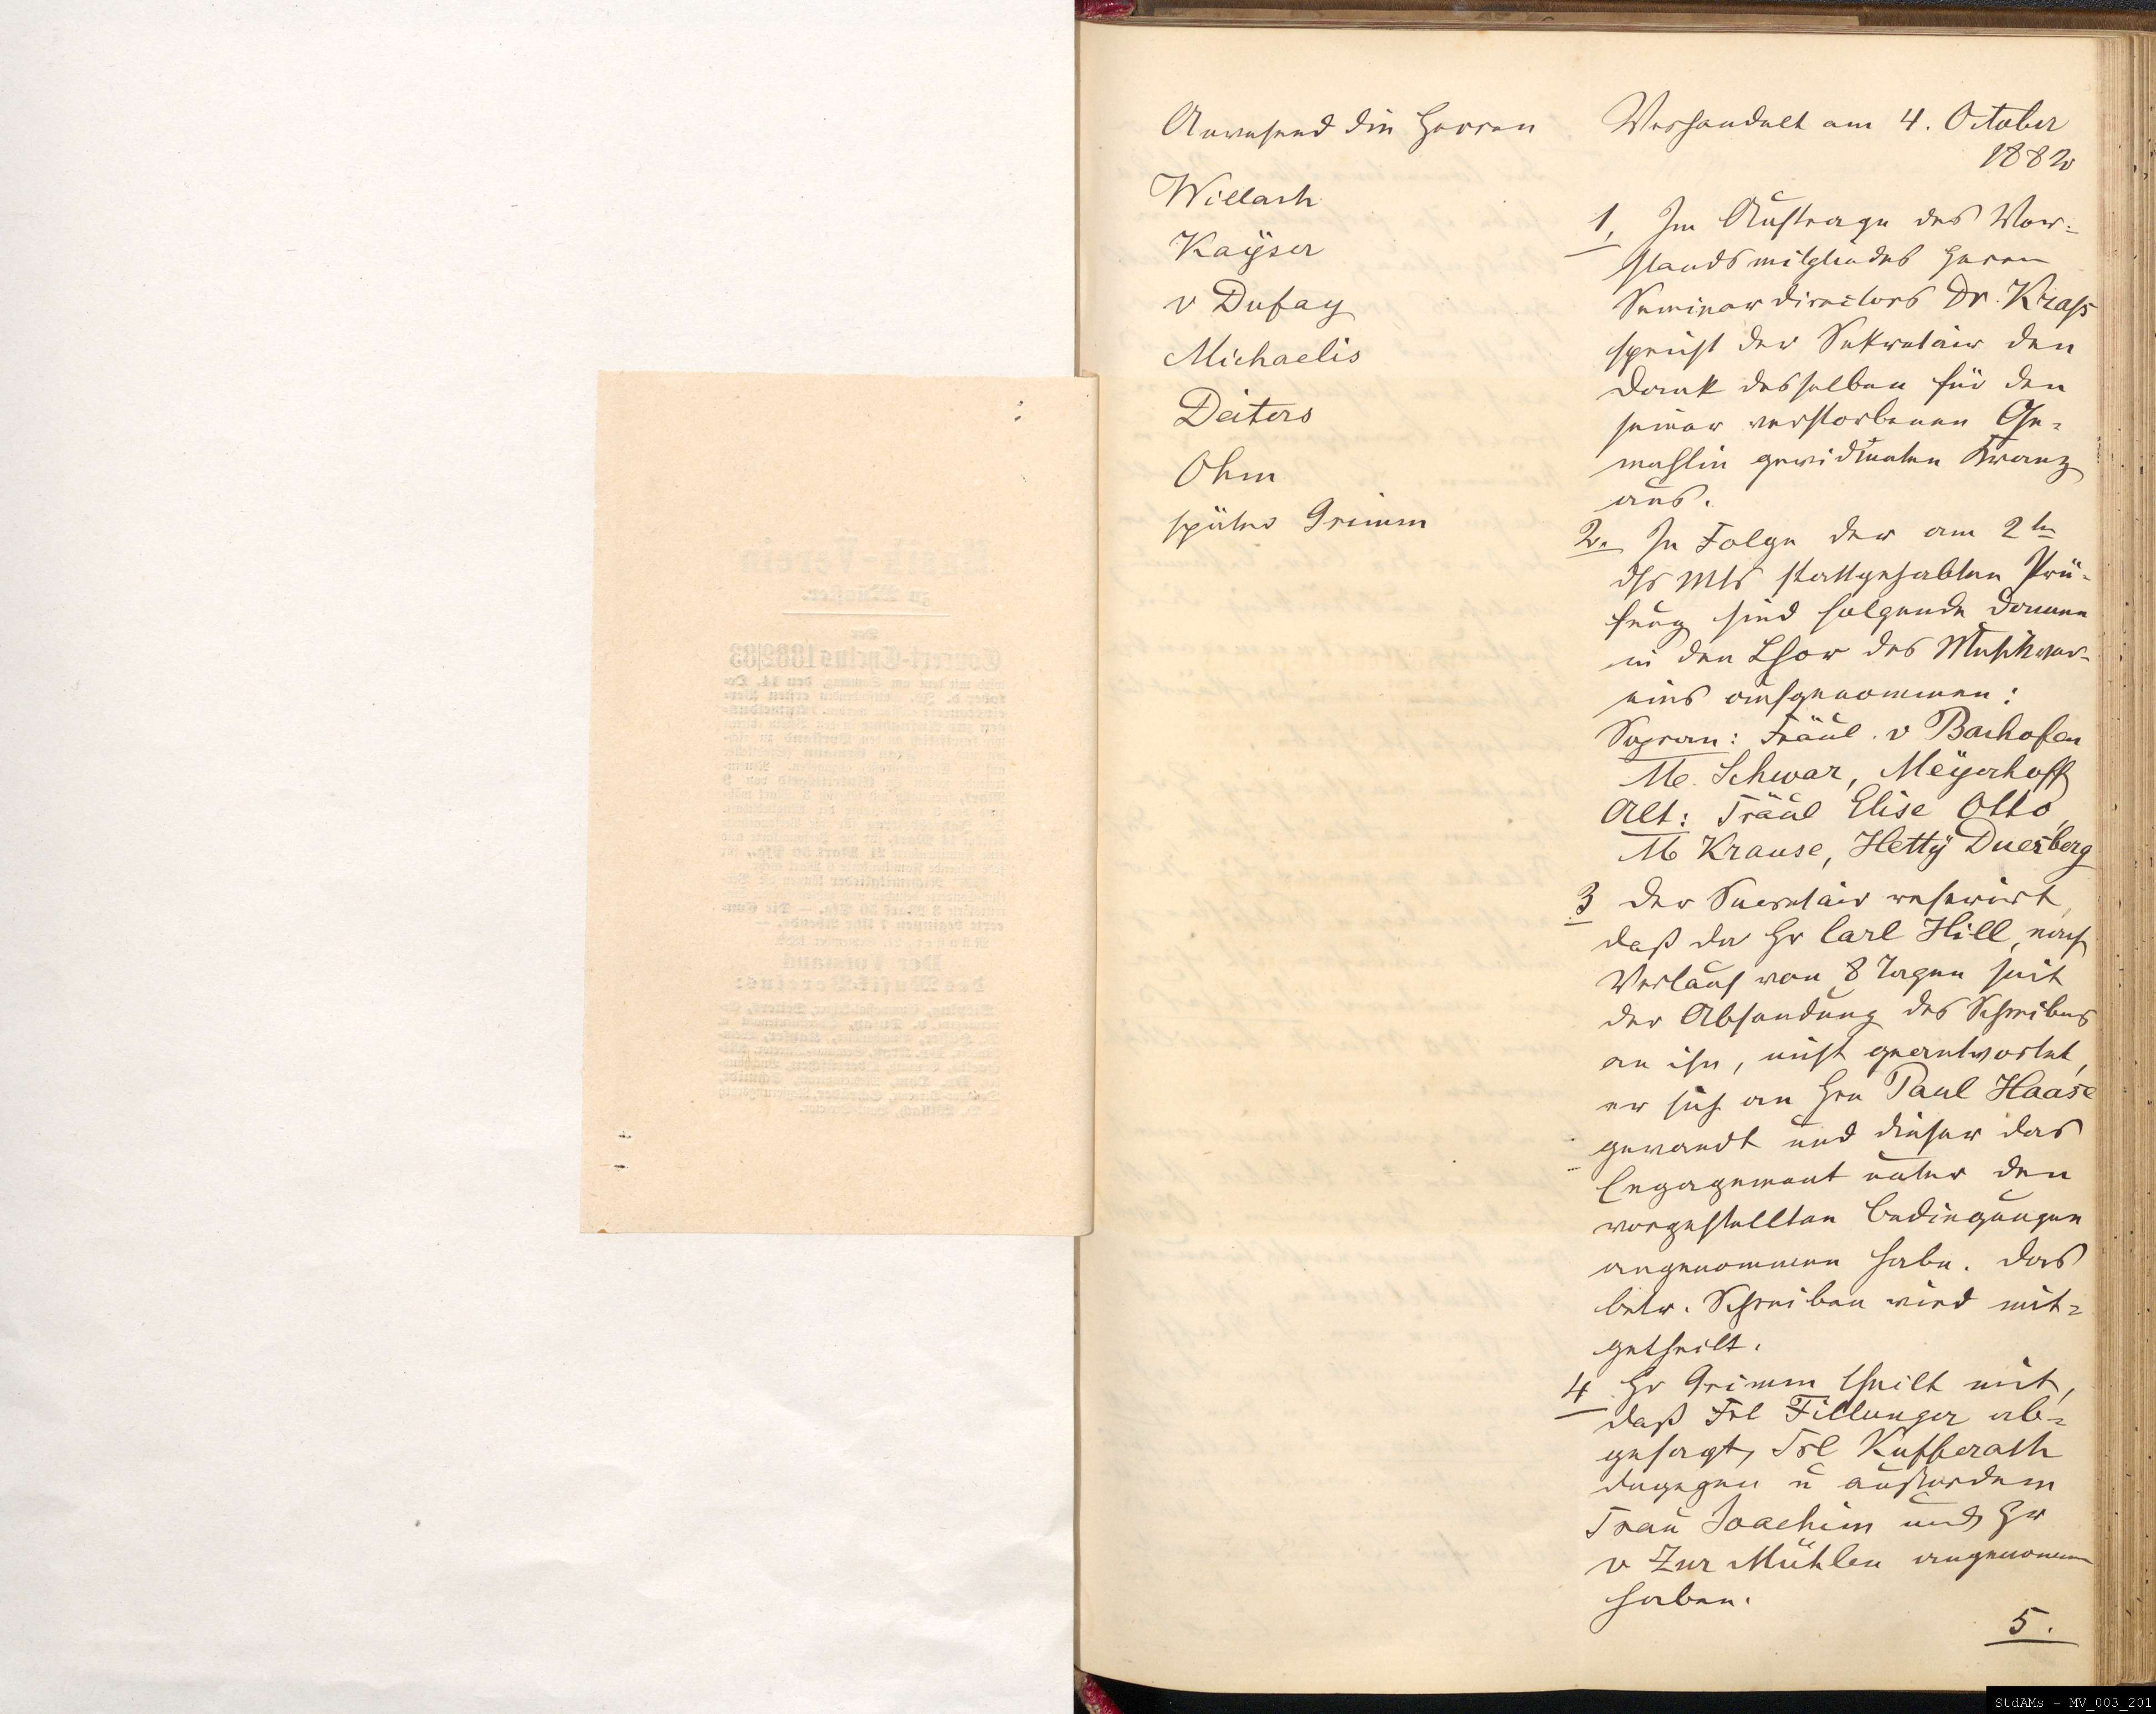 Anwesend die Herren
Willach
Kayser
v Dufay
Michaelis
Deiters
Ohm
später Grimm
Verhandelt am 4. October
1882
1, Im Auftrage des Vor-
standsmitgliedes Herrn
Seminardirectors Dr. Krass
spricht der Sekretair den
Dank desselben für den
seiner verstorbenen Ge-
mahlin gewidmeten Kranz
aus.
2. In Folge der am 2ten
dss Mts stattgehabten Prü-
fung sind folgende Damen
in den Chor des Musikver-
eins aufgenommen:
Sopran: Fräul. v Bachofen
M. Schwar, Meyerhoff
Alt: Fräul Elise Otto,
M Krause, Hetty Duesberg
3 Der Secretair referirt,
daß da Hr Carl Hill, nach
Verlauf von 8 Tagen seit
der Absendung des Schreibens
an ihn, nicht geantwortet,
er sich an Hrn Paul Haase
gewandt und dieser das
Engagement unter den
vorgestellten Bedingungen
angenommen habe. Das
betr. Schreiben wird mit-
getheilt.
4 Hr Grimm theilt mit,
daß Frl Fillunger ab-
gesagt, Frl Kufferath
dagegen u außerdem
Frau Joachim und Hr
v Zur Mühlen angenommen
haben.
5.
Musik-Verein
zu Münster.
Der
Concert-Cyclus 1882/83
Der Vorstand
des Musik-Vereins:
StdAMs - MV_003_201